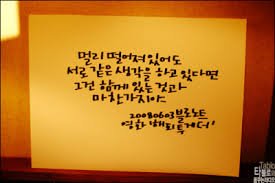 멀리 떨어져있어도
서로 같은 생각을 하고 있다면
그건 함께 있는 것과
마찬가지야
20080603 블로노트
영화 '해피투게더'
Tablo
타블로의